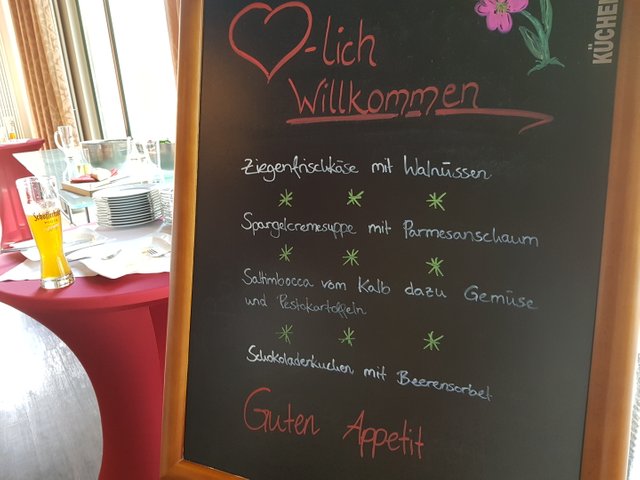 -lich
Willkommen
Ziegenfrischkäse mit Walnüssen
Spargelcremesuppe mit Parmesanschaum
Saltimbocca vom Kalb dazu Gemüse
und Pestokartoffeln
Schokoladenkuchen mit Beerensorbet
Guten Appetit